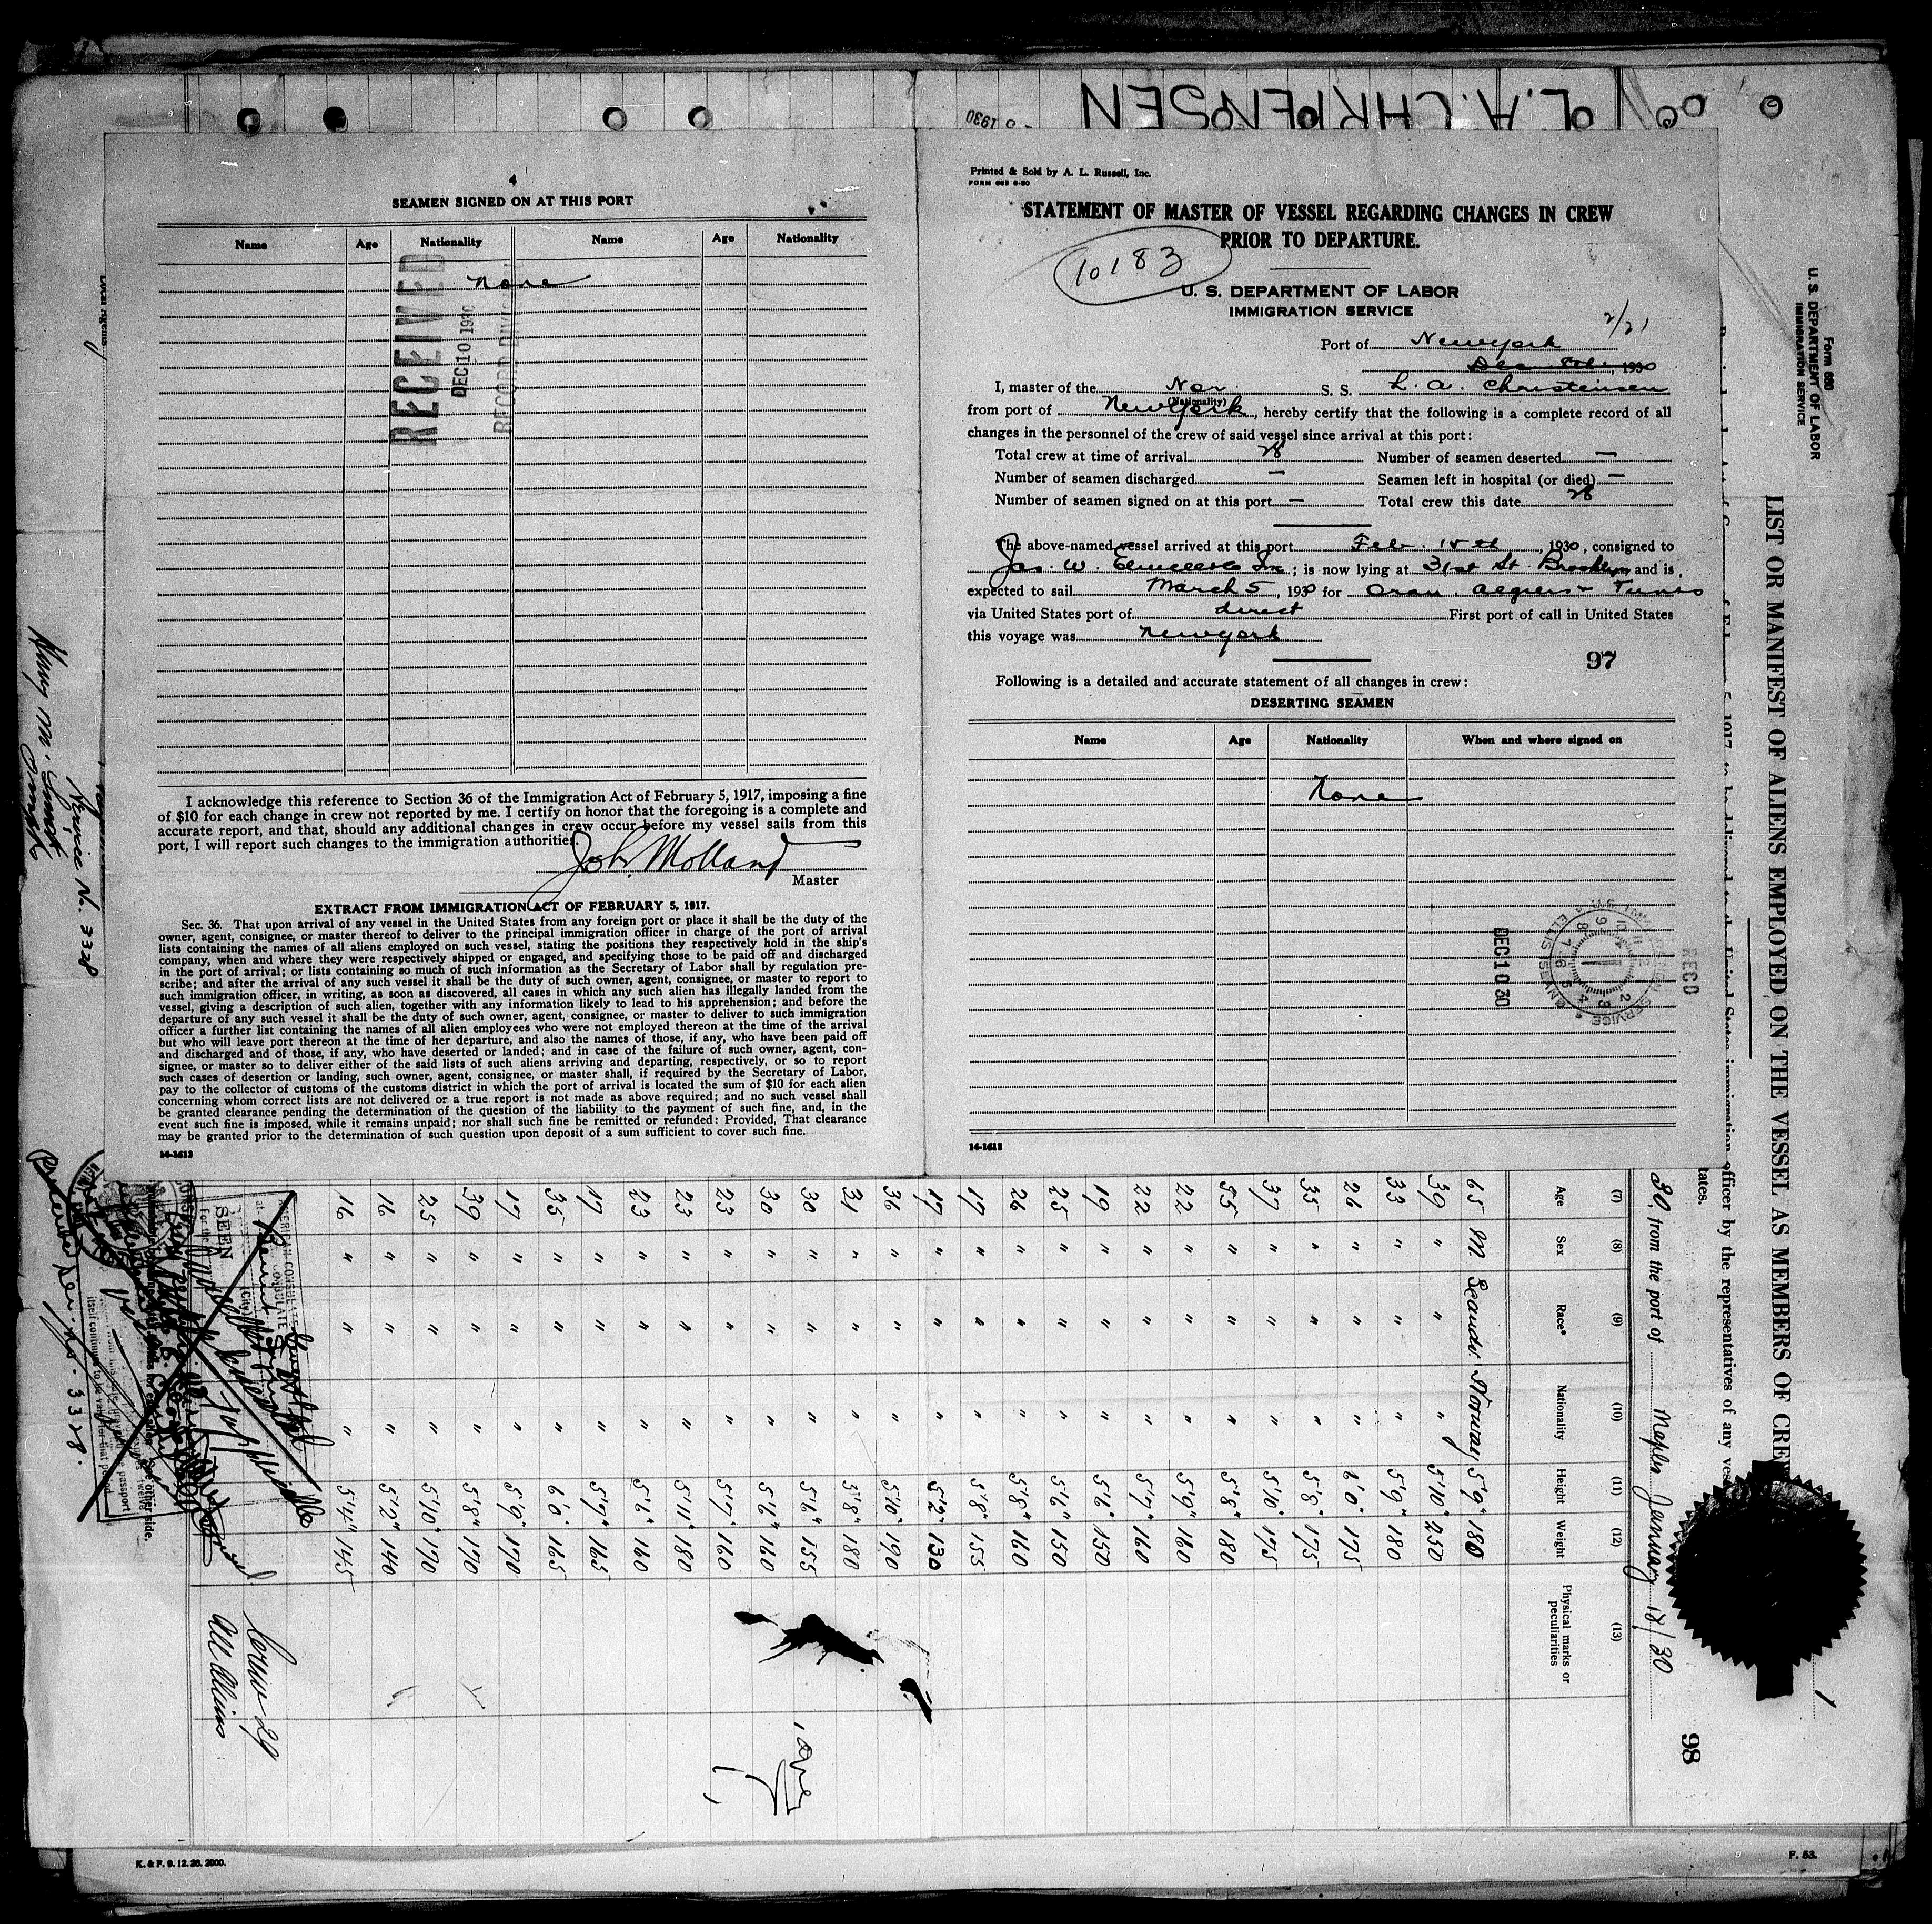 4
SEAMEN SIGNED ON AT THIS PORT
Name Age Nationality Name Age Nationality
None
RECEIVED
DEC 10 1930
I acknowledge this reference to Section 36 of the Immigration Act of February 5, 1917, imposing a fine
of $10 for each change in crew not reported by me. I certify on honor that the foregoing is a complete and
accurate report, and that, should any additional changes in crew occur before my vessel sails from this
port, I will report such changes to the immigration authorities.
Joh. Molland
Master
EXTRACT FROM IMMIGRATION ACT OF FEBRUARY 5, 1917.
Sec. 36. That upon arrival of any vessel in the United States from any foreign port or place it shall be the duty of the
owner, agent, consignee, or master thereof to deliver to the principal immigration officer in charge of the port of arrival
lists containing the names of all aliens employed on such vessel, stating the positions they respectively hold in the ship's
company, when and where they were respectively shipped or engaged, and specifying those to be paid off and discharged
in the port of arrival; or lists containing so much of such information as the Secretary of Labor shall by regulation pre-
scribe; and after the arrival of any such vessel it shall be the duty of such owner, agent, consignee, or master to report to
such immigration officer, in writing, as soon as discovered, all cases in which any such alien has illegally landed from the
vessel, giving a description of such alien, together with any information likely to lead to his apprehension; and before the
departure of any such vessel it shall be the duty of such owner, agent, consignee, or master to deliver to such immigration
officer a further list containing the names of all alien employees who were not employed thereon at the time of the arrival
but who will leave port thereon at the time of her departure, and also the names of those, if any, who have been paid off
and discharged and of those, if any, who have deserted or landed; and in case of the failure of such owner, agent, con-
signee, or master so to deliver either of the said lists of such aliens arriving and departing, respectively, or so to report
such cases of desertion or landing, such owner, agent, consignee, or master shall, if required by the Secretary of Labor,
pay to the collector of customs of the customs district in which the port of arrival is located the sum of $10 for each alien
concerning whom correct lists are not delivered or a true report is not made as above required; and no such vessel shall
be granted clearance pending the determination of the question of the liability to the payment of such fine, and, in the
event such fine is imposed, while it remains unpaid; nor shall such fine be remitted or refunded: Provided, That clearance
may be granted prior to the determination of such question upon deposit of a sum sufficient to cover such fine.
14-1613
Printed & Sold by A. L. Russell, Inc.
FORM 689 6-30
STATEMENT OF MASTER OF VESSEL REGARDING CHANGES IN CREW
PRIOR TO DEPARTURE.
10183
U. S. DEPARTMENT OF LABOR
IMMIGRATION SERVICE
2/21
Port of Newyork
, 1930
I, master of the Nor. S. S. L. A. Christensen
(Nationality)
from port of Newyork, hereby certify that the following is a complete record of all
changes in the personnel of the crew of said vessel since arrival at this port:
Total crew at time of arrival 28 Number of seamen deserted —
Number of seamen discharged — Seamen left in hospital (or died) —
Number of seamen signed on at this port — Total crew this date 28
The above-named vessel arrived at this port Feb. 15th, 1930, consigned to
Jas. W. Elwell & Co Inc; is now lying at 31st St. Brooklyn and is
expected to sail March 5, 1930 for Oran Algiers & Tunis
via United States port of direct First port of call in United States
this voyage was Newyork
97
Following is a detailed and accurate statement of all changes in crew:
DESERTING SEAMEN
Name Age Nationality When and where signed on
None
DEC 10 30
RECD
14-1613
Form 680
U. S. DEPARTMENT OF LABOR
IMMIGRATION SERVICE
LIST OR MANIFEST OF ALIENS EMPLOYED ON THE VESSEL AS MEMBERS OF CREW
officer by the representatives of any vessel
30, from the port of Naples January 18/30
98
(7) (8) (9) (10) (11) (12) (13)
Age Sex Race* Nationality Height Weight Physical marks or peculiarities
65 M Scand. Norway 5'9" 180
39 " " " 5'10" 250
33 " " " 5'9" 180
26 " " " 6'0" 175
35 " " " 5'8" 175
37 " " " 5'10" 175
55 " " " 5'8" 180
22 " " " 5'9" 160
22 " " " 5'7" 160
19 " " " 5'6" 150
25 " " " 5'6" 150
26 " " " 5'8" 160
17 " " " 5'8" 155
17 " " " 5'2" 130
36 " " " 5'10" 190
31 " " " 5'8" 180
30 " " " 5'6" 155
30 " " " 5'6" 160
23 " " " 5'7" 160
23 " " " 5'11" 180
23 " " " 5'6" 160
17 " " " 5'7" 165
35 " " " 6'0" 165
17 " " " 5'9" 170
39 " " " 5'8" 170
25 " " " 5'10" 170
16 " " " 5'2" 140
16 " " " 5'4" 145
SEEN
Service No. 3328
Service No. 3328.
All Aliens
K. & F. 9. 12. 28. 2000.
F. 53.